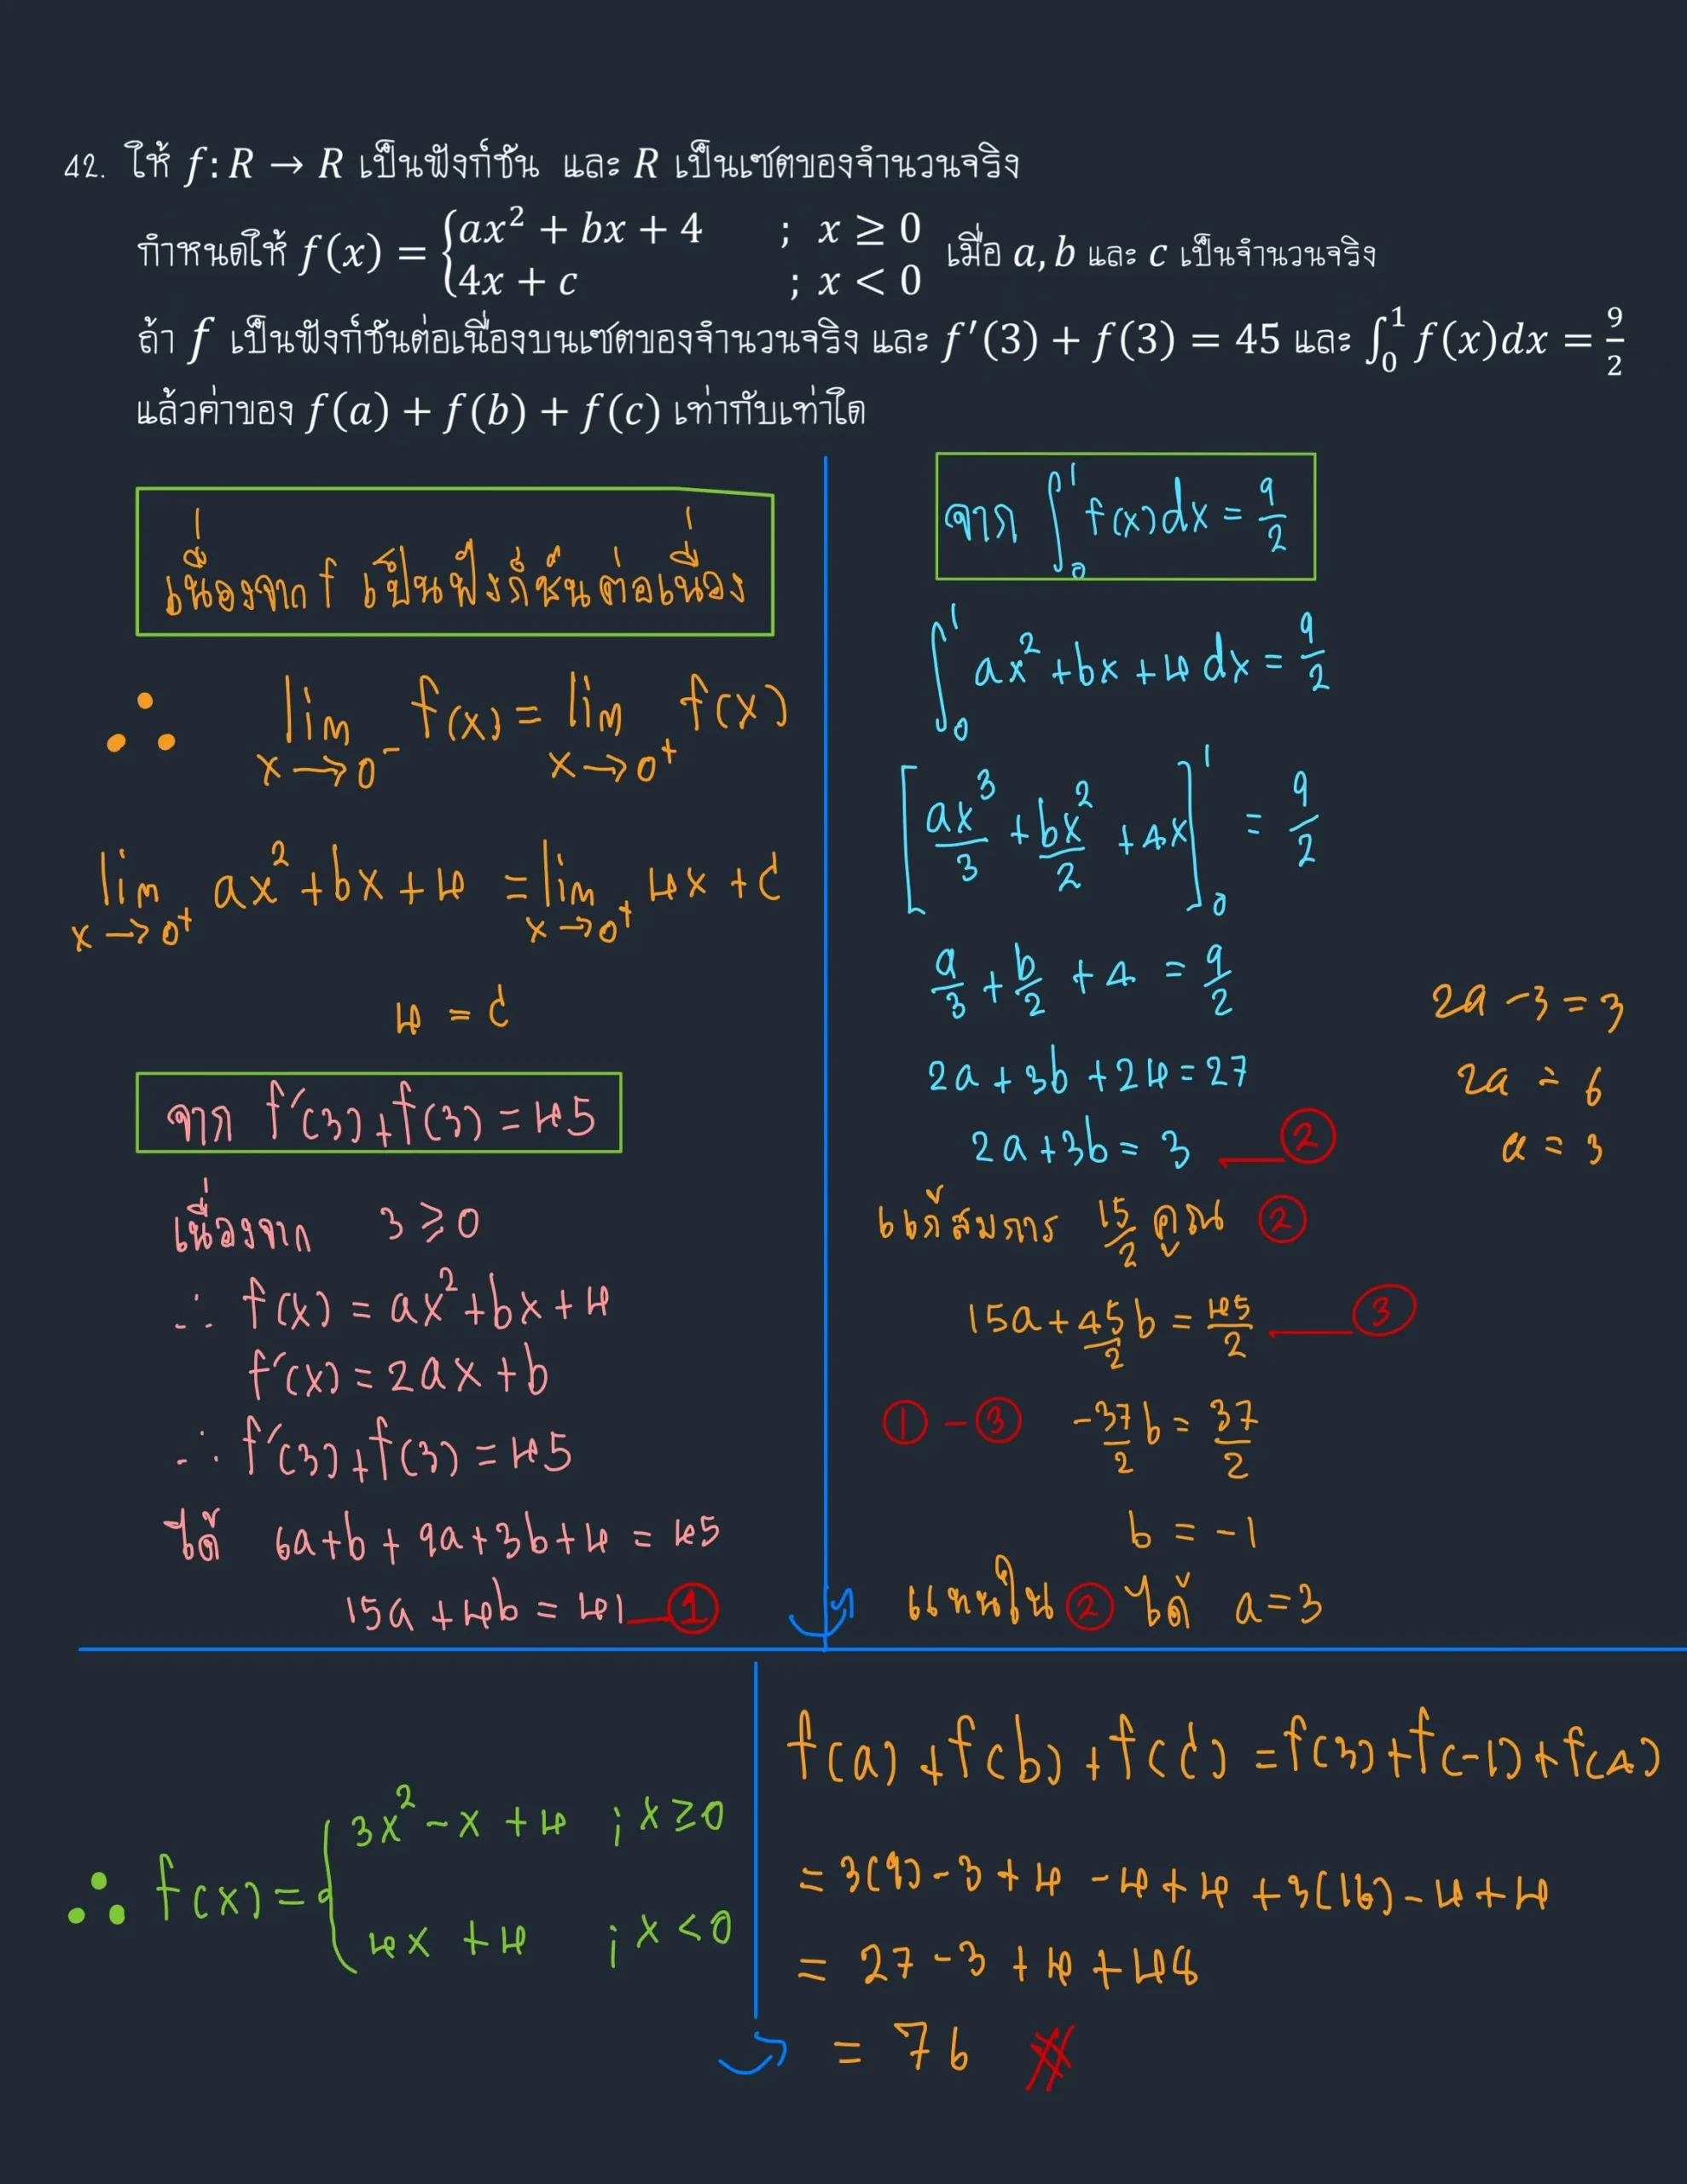 42. ให้ f: R → R เป็นฟังก์ชัน และ R เป็นเซตของจำนวนจริง
กำหนดให้ f(x) = { ax² + bx + 4 ; x ≥ 0
4x + c ; x < 0 เมื่อ a, b และ c เป็นจำนวนจริง
ถ้า f เป็นฟังก์ชันต่อเนื่องบนเซตของจำนวนจริง และ f′(3) + f(3) = 45 และ ∫₀¹ f(x)dx = 9/2
แล้วค่าของ f(a) + f(b) + f(c) เท่ากับเท่าใด
เนื่องจาก f เป็นฟังก์ชันต่อเนื่อง
∴ lim x→0⁻ f(x) = lim x→0⁺ f(x)
lim x→0⁺ ax² + bx + 4 = lim x→0⁺ 4x + c
4 = c
จาก f′(3) + f(3) = 45
เนื่องจาก 3 ≥ 0
∴ f(x) = ax² + bx + 4
f′(x) = 2ax + b
∴ f′(3) + f(3) = 45
ได้ 6a + b + 9a + 3b + 4 = 45
15a + 4b = 41 — ①
จาก ∫₀¹ f(x)dx = 9/2
∫₀¹ ax² + bx + 4 dx = 9/2
[ax³/3 + bx²/2 + 4x]₀¹ = 9/2
a/3 + b/2 + 4 = 9/2
2a + 3b + 24 = 27
2a + 3b = 3 — ②
แก้สมการ 15/2 คูณ ②
15a + 45/2 b = 45/2 — ③
① - ③ -37/2 b = 37/2
b = -1
แทนใน ② ได้ a = 3
2a - 3 = 3
2a = 6
a = 3
∴ f(x) = { 3x² - x + 4 ; x ≥ 0
4x + 4 ; x < 0
f(a) + f(b) + f(c) = f(3) + f(-1) + f(4)
= 3(9) - 3 + 4 - 4 + 4 + 3(16) - 4 + 4
= 27 - 3 + 4 + 48
= 76